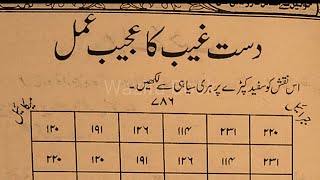 دست غیب کا عجیب عمل
اس نقش کو سفید کپڑے پر ہری سیاہی سے لکھیں۔
۷۸۶
۱۲۰ ۱۹۱ ۱۲۶ ۱۱۴ ۲۳۱ ۲۲۰
۲۲۰ ۱۲۰ ۱۹۱ ۱۲۶ ۱۱۴ ۲۳۱